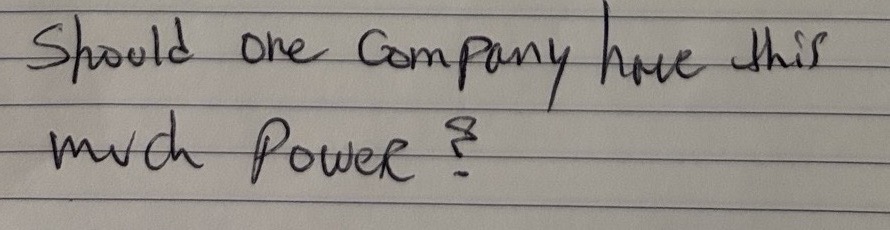 Should one Company have this
much Power?